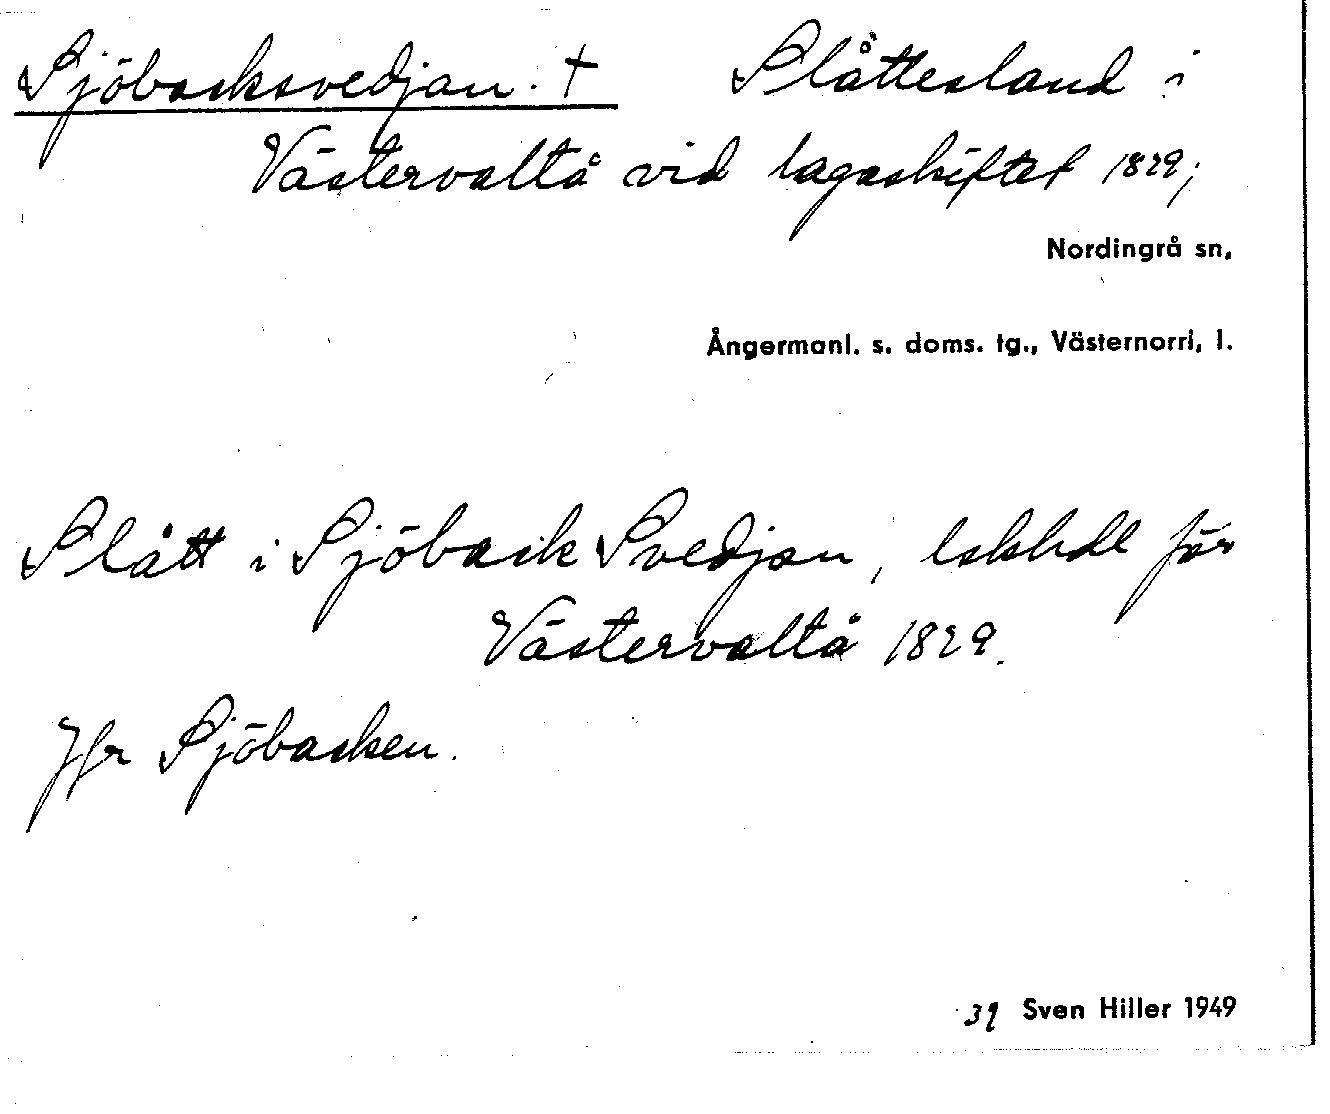 Sjöbacksvedjan. † Slåttesland i
Västervaltå vid lagaskiftet 1829;
Nordingrå sn,
Ångermanl. s. doms. tg., Västernorrl, l.
Slått i Sjöback Svedjan, lskhdl för
Västervaltå 1829.
Jfr Sjöbacken.
39 Sven Hiller 1949